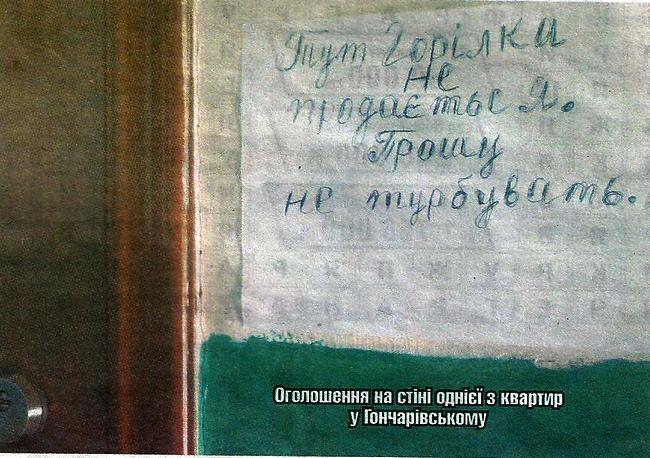 Тут Горілка
не
продається.
Прошу
не турбувать.
Оголошення на стіні однієї з квартир
у Гончарівському